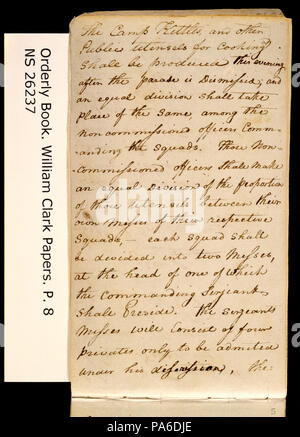 Orderly Book. William Clark Papers. P. 8
NS 26237
The Camp Kettles, and other
Public Utensels for Cooking
shall be produced this evening
after the parade is Dismissed; and
an equal division shall take
place of the same, among the
non commissioned officers Comm-
anding the squads. Those Non-
Commissioned officers shall make
an equal Division of the proportion
of those Utensils between their
own Messes of their respective
Squads, — each squad shall
be devided into two Messes,
at the head of one of which
the commanding Serjeants
shall Preside. The sergeants
Messes will Consist of four
privates only to be admited
under his discression, the
5
alamy
alamy
Image ID: PA6DJE
www.alamy.com